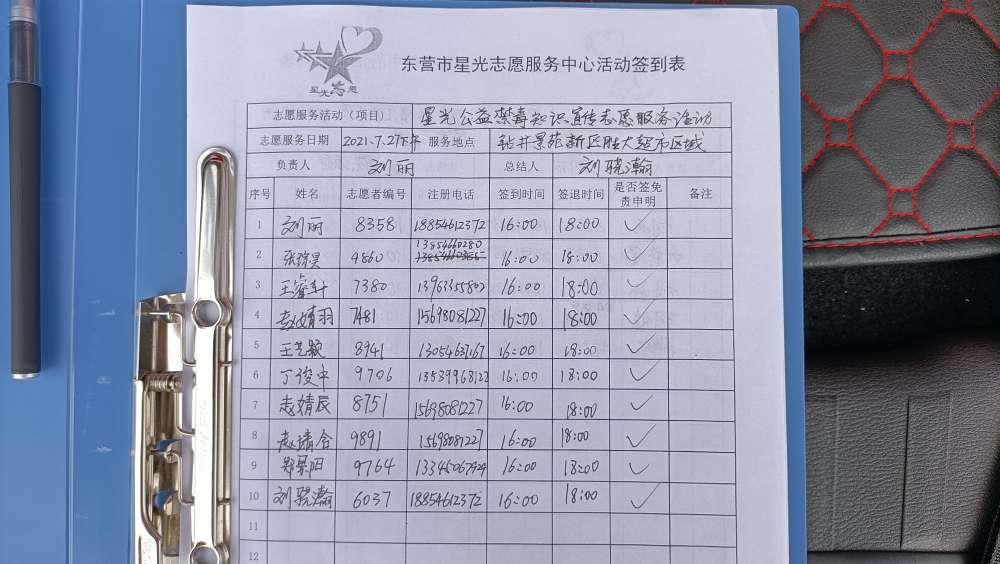 星光志愿
东营市星光志愿服务中心活动签到表
志愿服务活动（项目） 星光公益禁毒知识宣传志愿服务活动
志愿服务日期 2021.7.27下午 服务地点 钻井景苑新区胜大超市区域
负责人 刘丽 总结人 刘骁瀚
序号 姓名 志愿者编号 注册电话 签到时间 签退时间 是否签免责申明 备注
1 刘丽 8358 18854612372 16:00 18:00 ✓
13854660280
2 4860 16:00 18:00 ✓
3 王睿轩 7380 13963355802 16:00 18:00 ✓
4 赵婧羽 7481 15698081227 16:00 18:00 ✓
5 王艺颖 8941 13054637167 16:00 18:00 ✓
6 丁俊中 9706 16:00 18:00 ✓
7 赵婧辰 8751 15698081227 16:00 18:00 ✓
8 9891 15698081227 16:00 18:00 ✓
9 郑景阳 9764 16:00 18:00 ✓
10 刘骁瀚 6037 18854612372 16:00 18:00 ✓
11
12